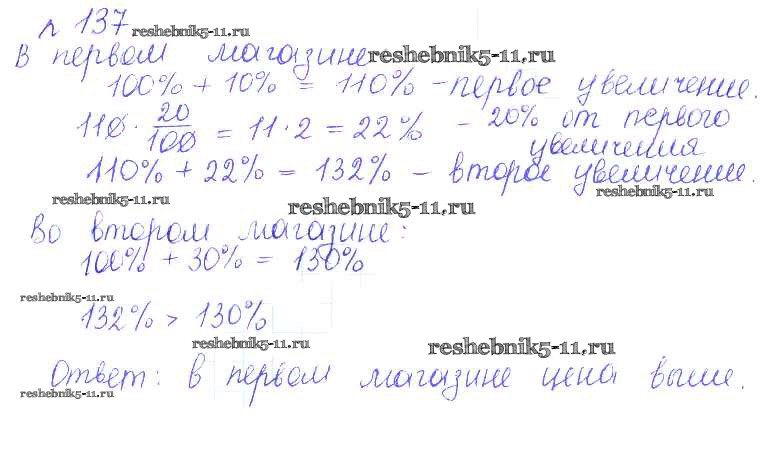 № 137 reshebnik5-11.ru
В первом магазине reshebnik5-11.ru
100% + 10% = 110% - первое увеличение.
110 · 20/100 = 11 · 2 = 22% - 20% от первого
увеличения
110% + 22% = 132% - второе увеличение.
reshebnik5-11.ru reshebnik5-11.ru reshebnik5-11.ru
Во втором магазине:
100% + 30% = 130%
reshebnik5-11.ru
132% > 130%
reshebnik5-11.ru reshebnik5-11.ru
Ответ: в первом магазине цена выше.
reshebnik5-11.ru